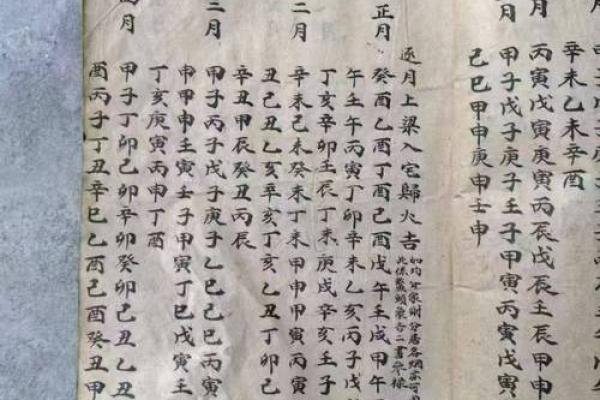 月
辛未乙未辛酉
月
丙寅戊寅庚寅丙辰戊辰壬辰甲申
月
甲子戊子庚子壬子甲寅丙寅戊寅
己巳甲申庚申壬申
逐月上梁入宅歸火吉
如均分家財分居各烟亦可
此係鰲頭象吉二書參採
正月
癸酉乙酉丁酉己酉戊午壬戌甲午
午壬午丙寅丁卯辛未乙亥丙子戊
丁亥辛卯壬辰丁未庚戌辛亥壬子
二月
辛未己未癸未丁未甲申甲寅丙寅
丑己丑乙亥辛亥丁亥乙丑丁卯己
辛丑甲辰癸丑丙辰
三月
甲子丙子戊子庚子乙巳己巳丙寅
申甲申壬寅壬子甲寅丁巳戊寅壬
丁亥庚寅丙申丁酉
四月
甲子丁卯己卯辛卯癸卯己丑乙丑
酉丙子丁丑辛巳乙酉己酉癸丑甲